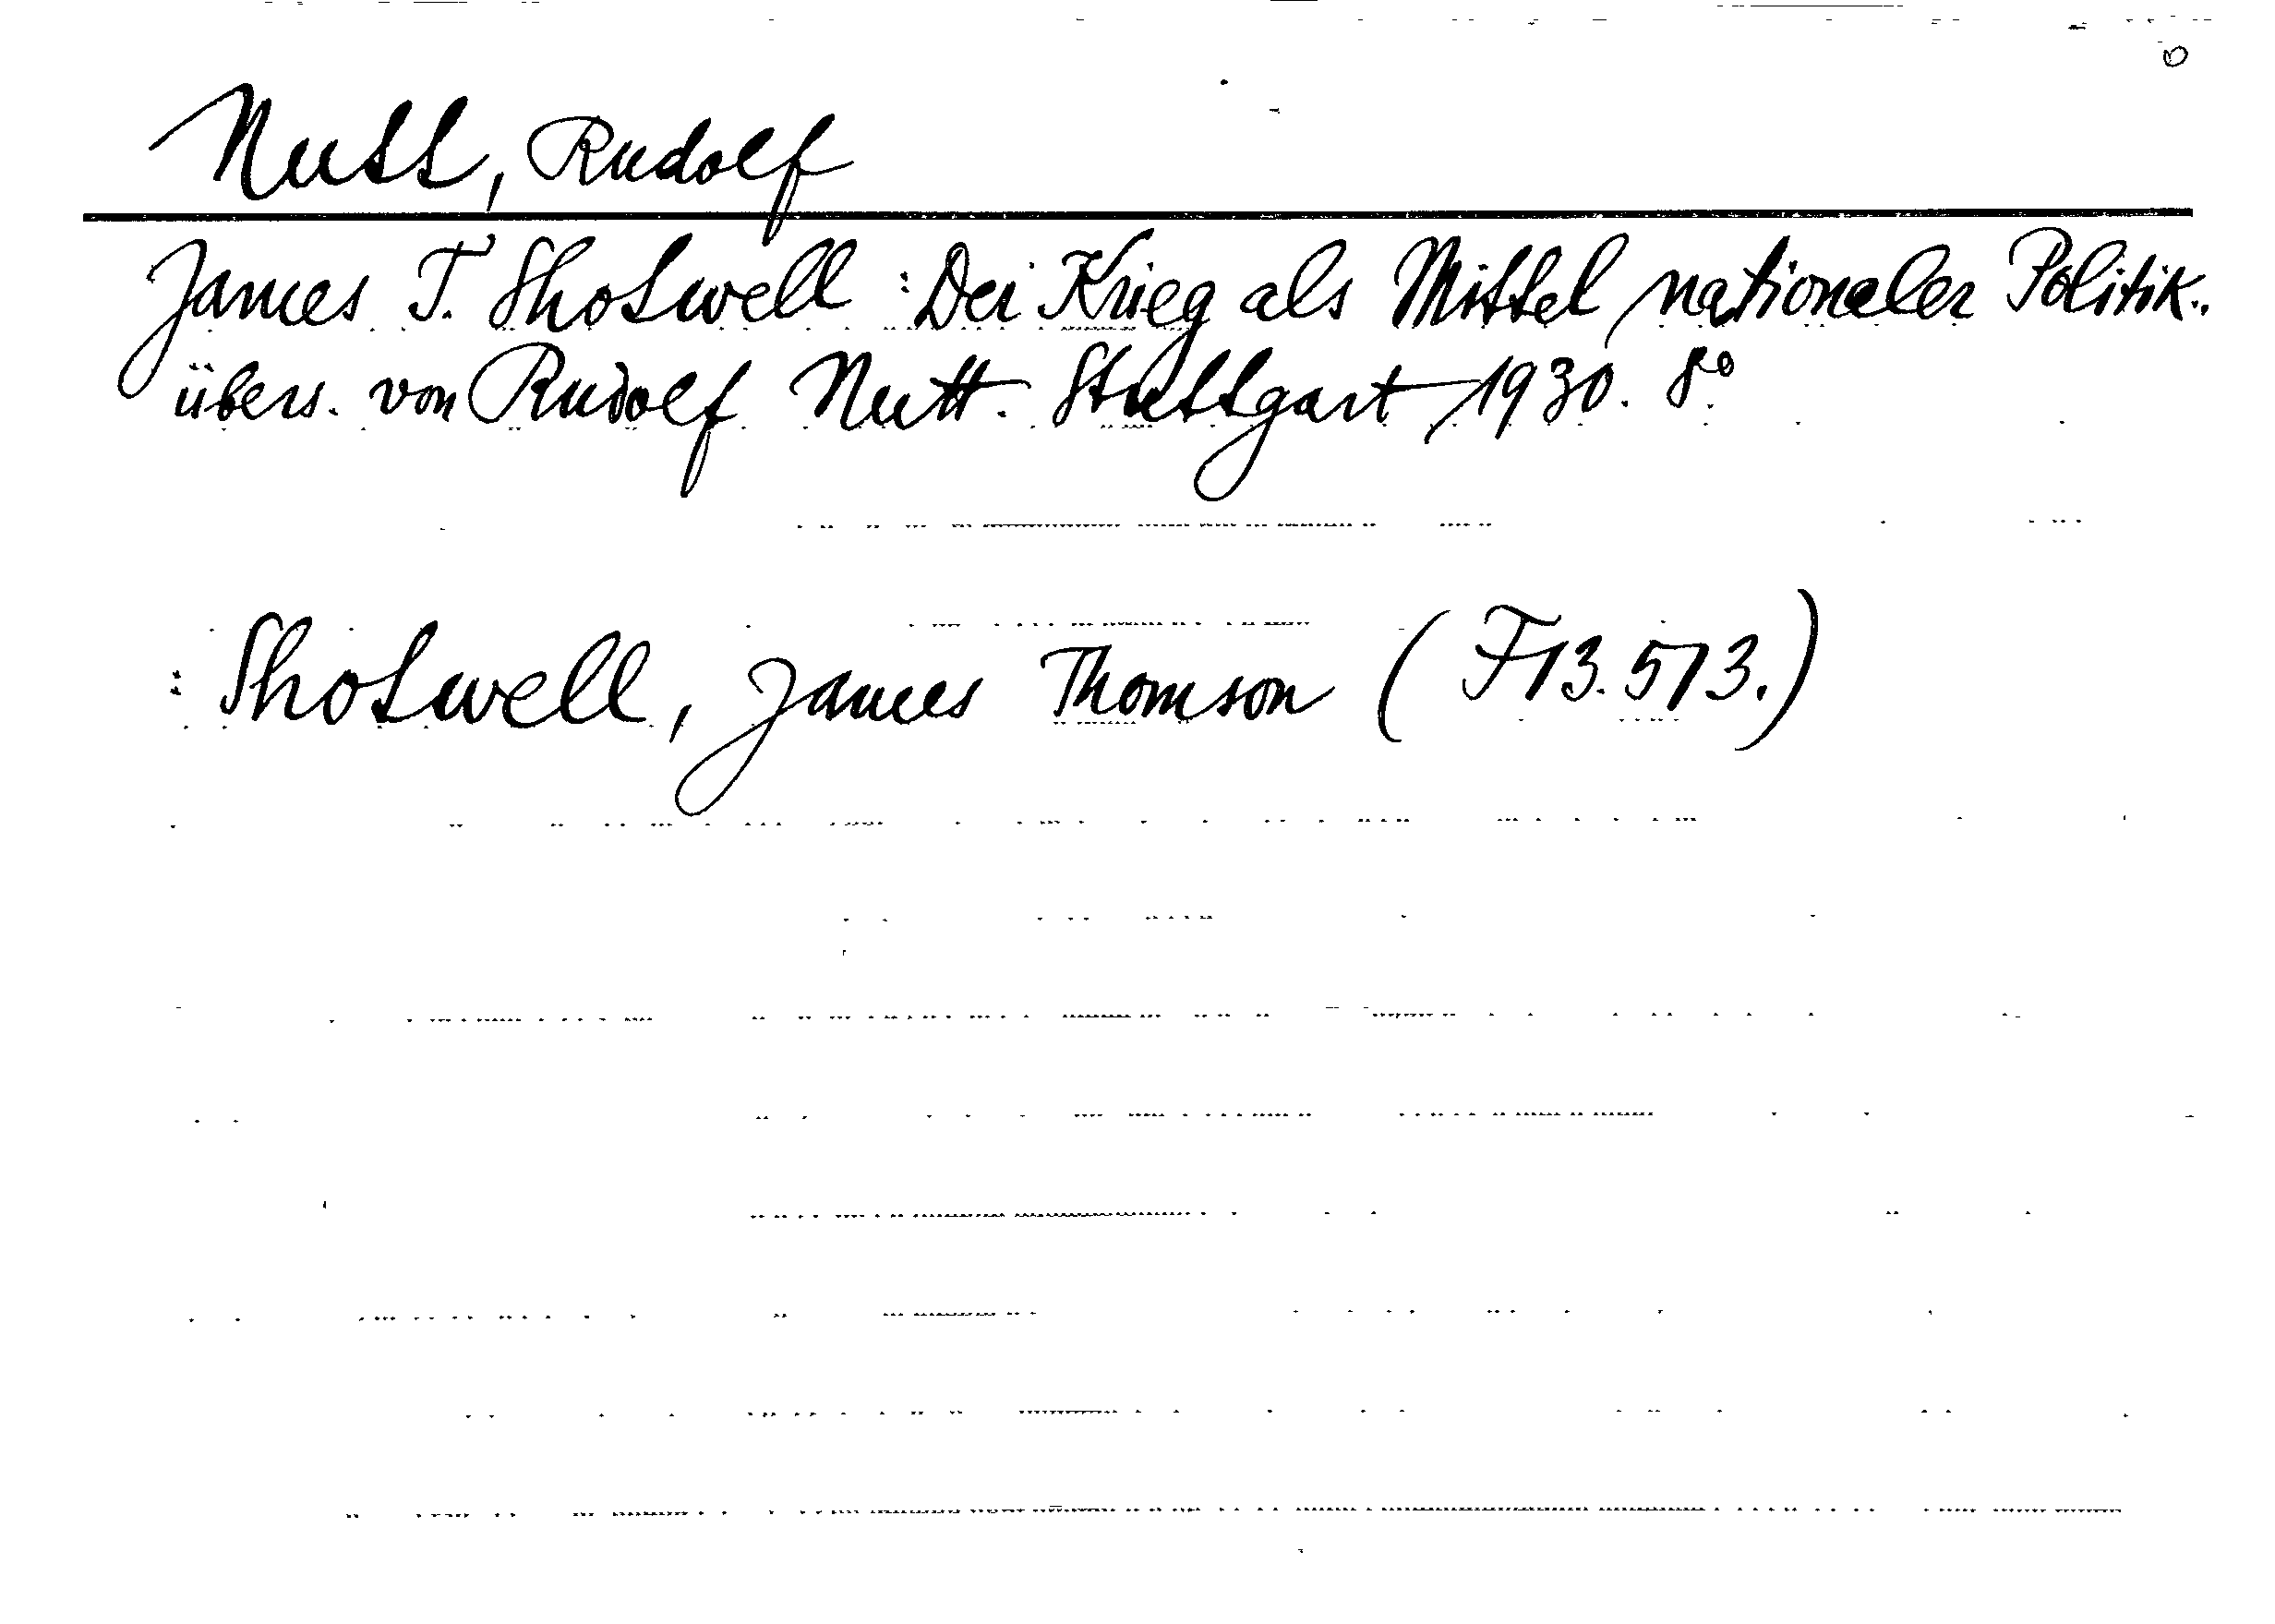 Nutt, Rudolf
James T. Shotwell : Der Krieg als Mittel nationaler Politik.
übers. von Rudolf Nutt. Stuttgart 1930. 8°
: Shotwell, James Thomson (F13.513.)